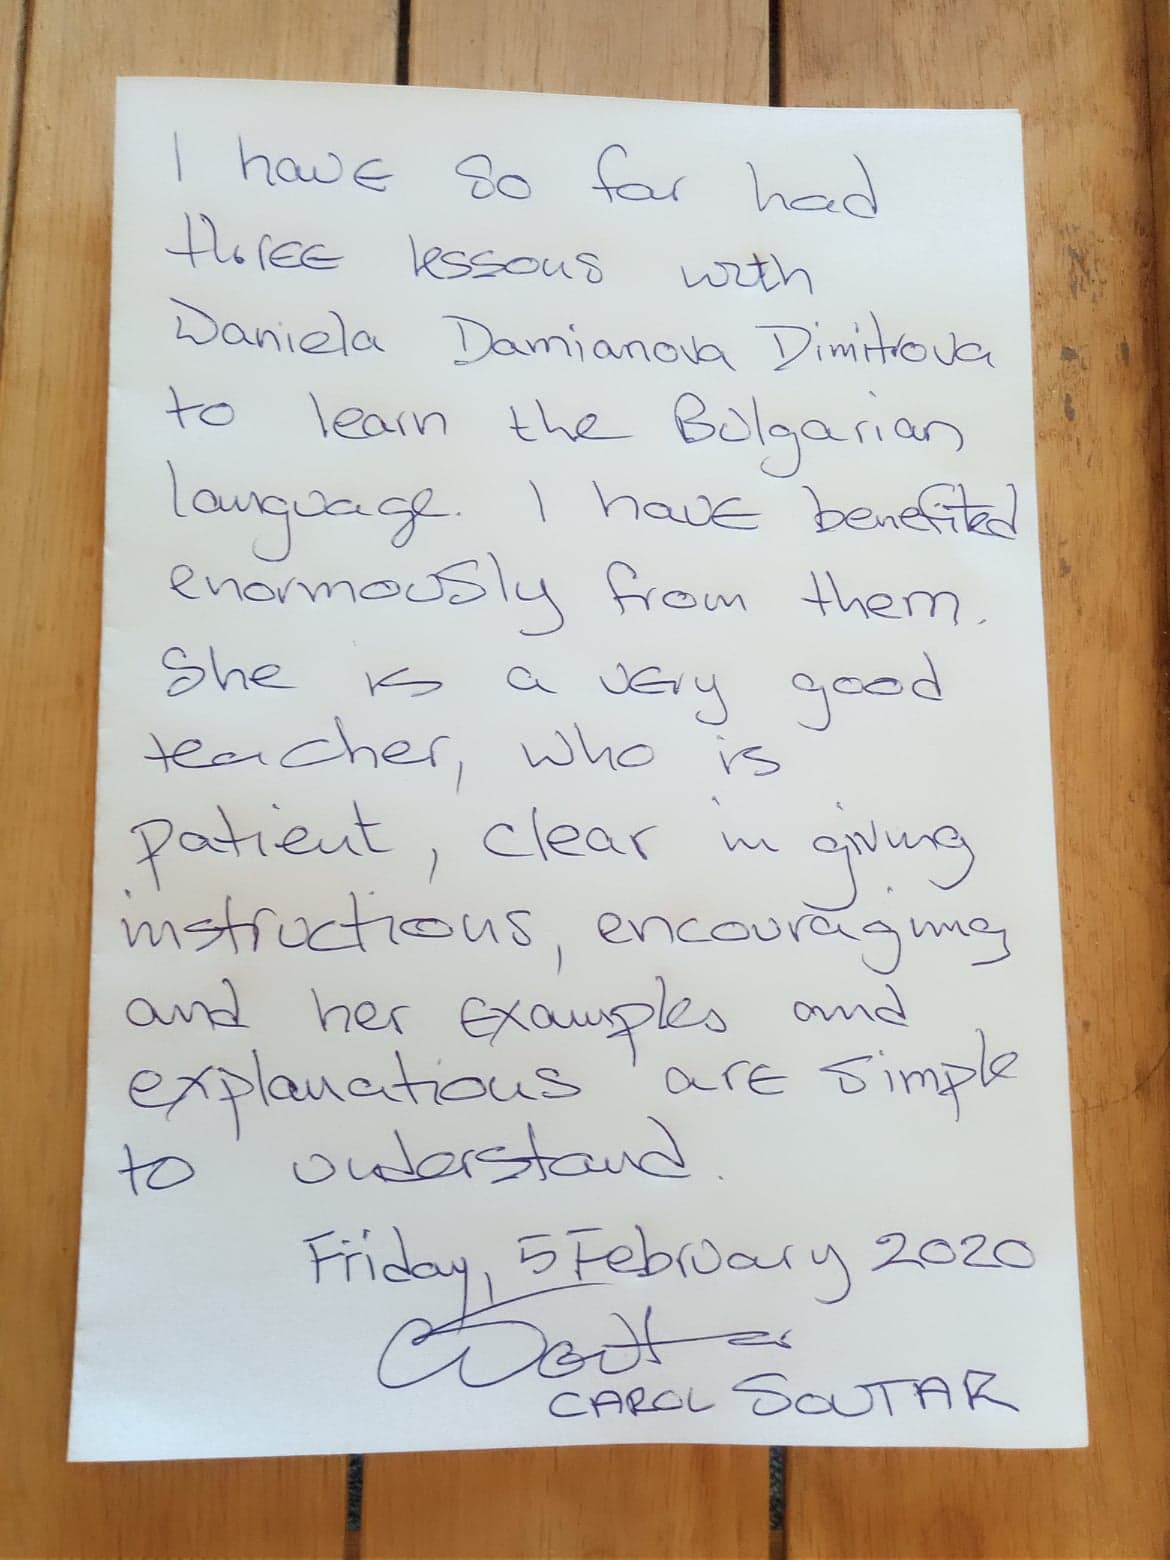 I have so far had
three lessons with
Daniela Damianova Dimitrova
to learn the Bulgarian
language. I have benefited
enormously from them.
She is a very good
teacher, who is
patient, clear in giving
instructions, encouraging
and her examples and
explanations are simple
to understand.
Friday, 5 February 2020
CAROL SOUTAR